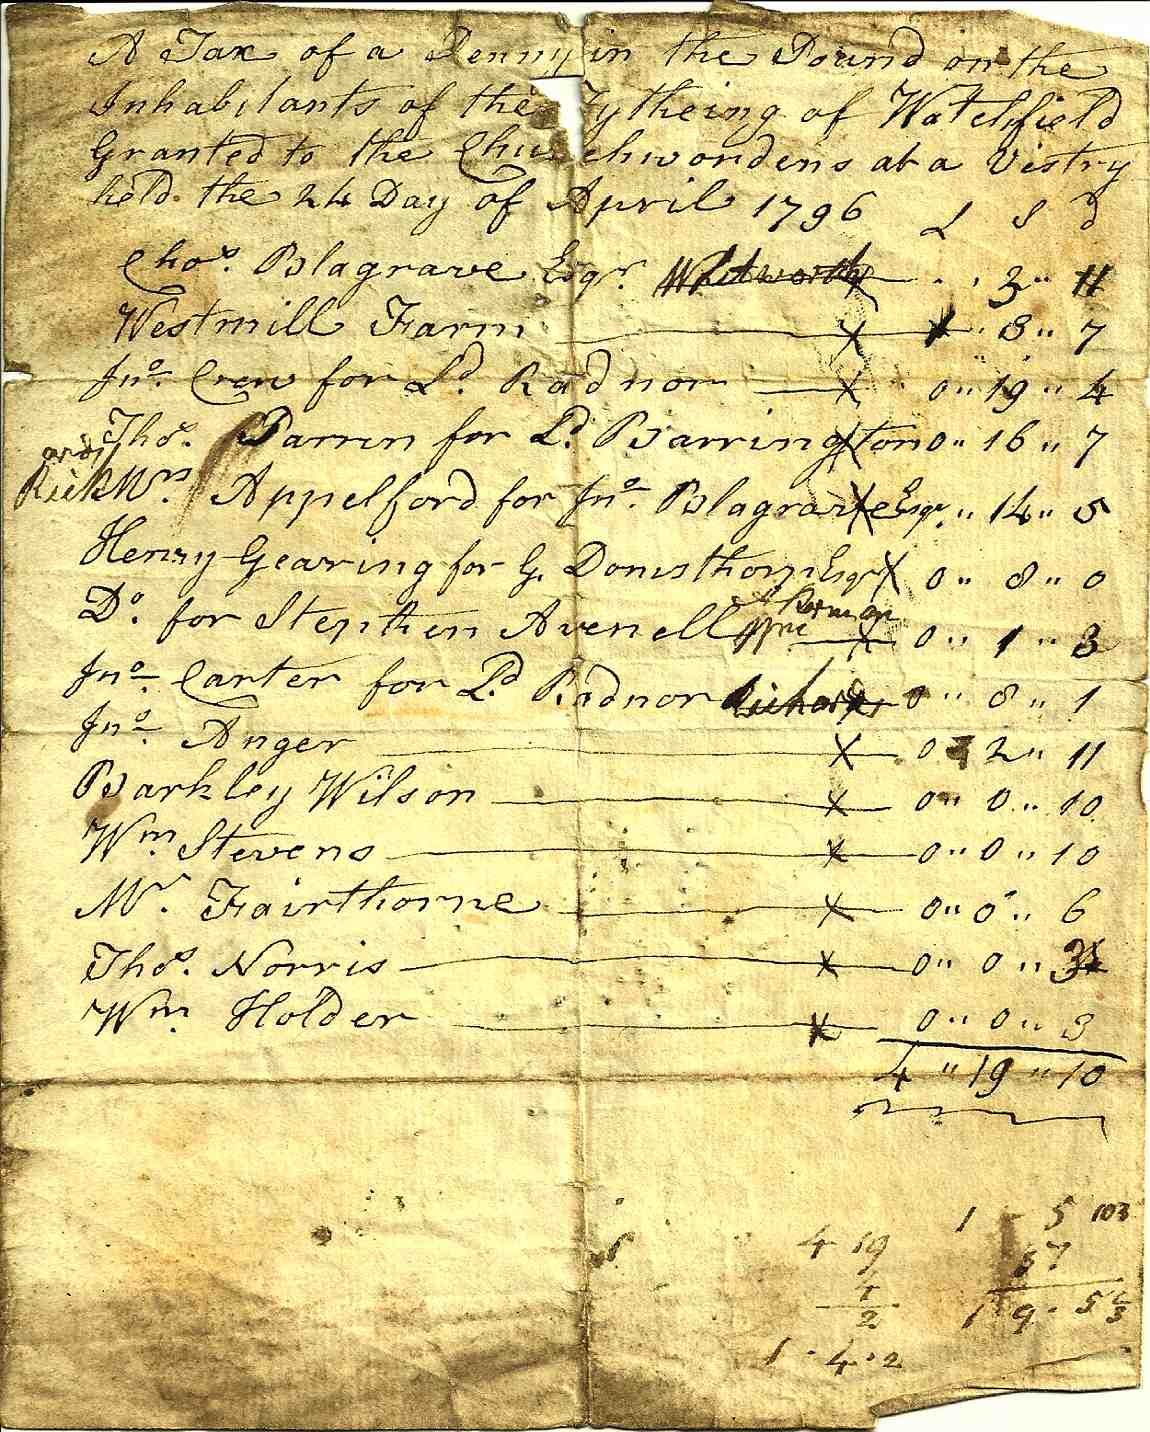 A Tax of a Penny in the Pound on the
Inhabitants of the Tytheing of Watchfield
Granted to the Churchwordens at a Vistry
held the 24 Day of April 1796 L S d
Chos. Blagrave Esqr. Whitworth 3 " 11
Westmill Farm X 8 " 7
Jno. Crew for Ld. Radnor X 0 " 19 " 4
Thos. Parren for Ld. Barrington X 0 " 16 " 7
and Rick Wm. Appelford for Jno. Blagrave Esqr. X " 14 " 5
Henry Gearing for G. Domsthorp Esqr X 0 " 8 " 0
Do. for Stephen Avenell X 0 " 1 " 3
Jno. Carter for Ld. Radnor Richards 0 " 8 " 1
Jno. Anger X 0 " 2 " 11
Barkley Wilson X 0 " 0 " 10
Wm. Stevens X 0 " 0 " 10
Mr. Fairthorne X 0 " 0 " 6
Thos. Norris X 0 " 0 " 3
Wm. Holder X 0 " 0 " 3
4 " 19 " 10
1 - 5 103
4 19
57
1
2
1 9 - 5
1 - 4 - 2